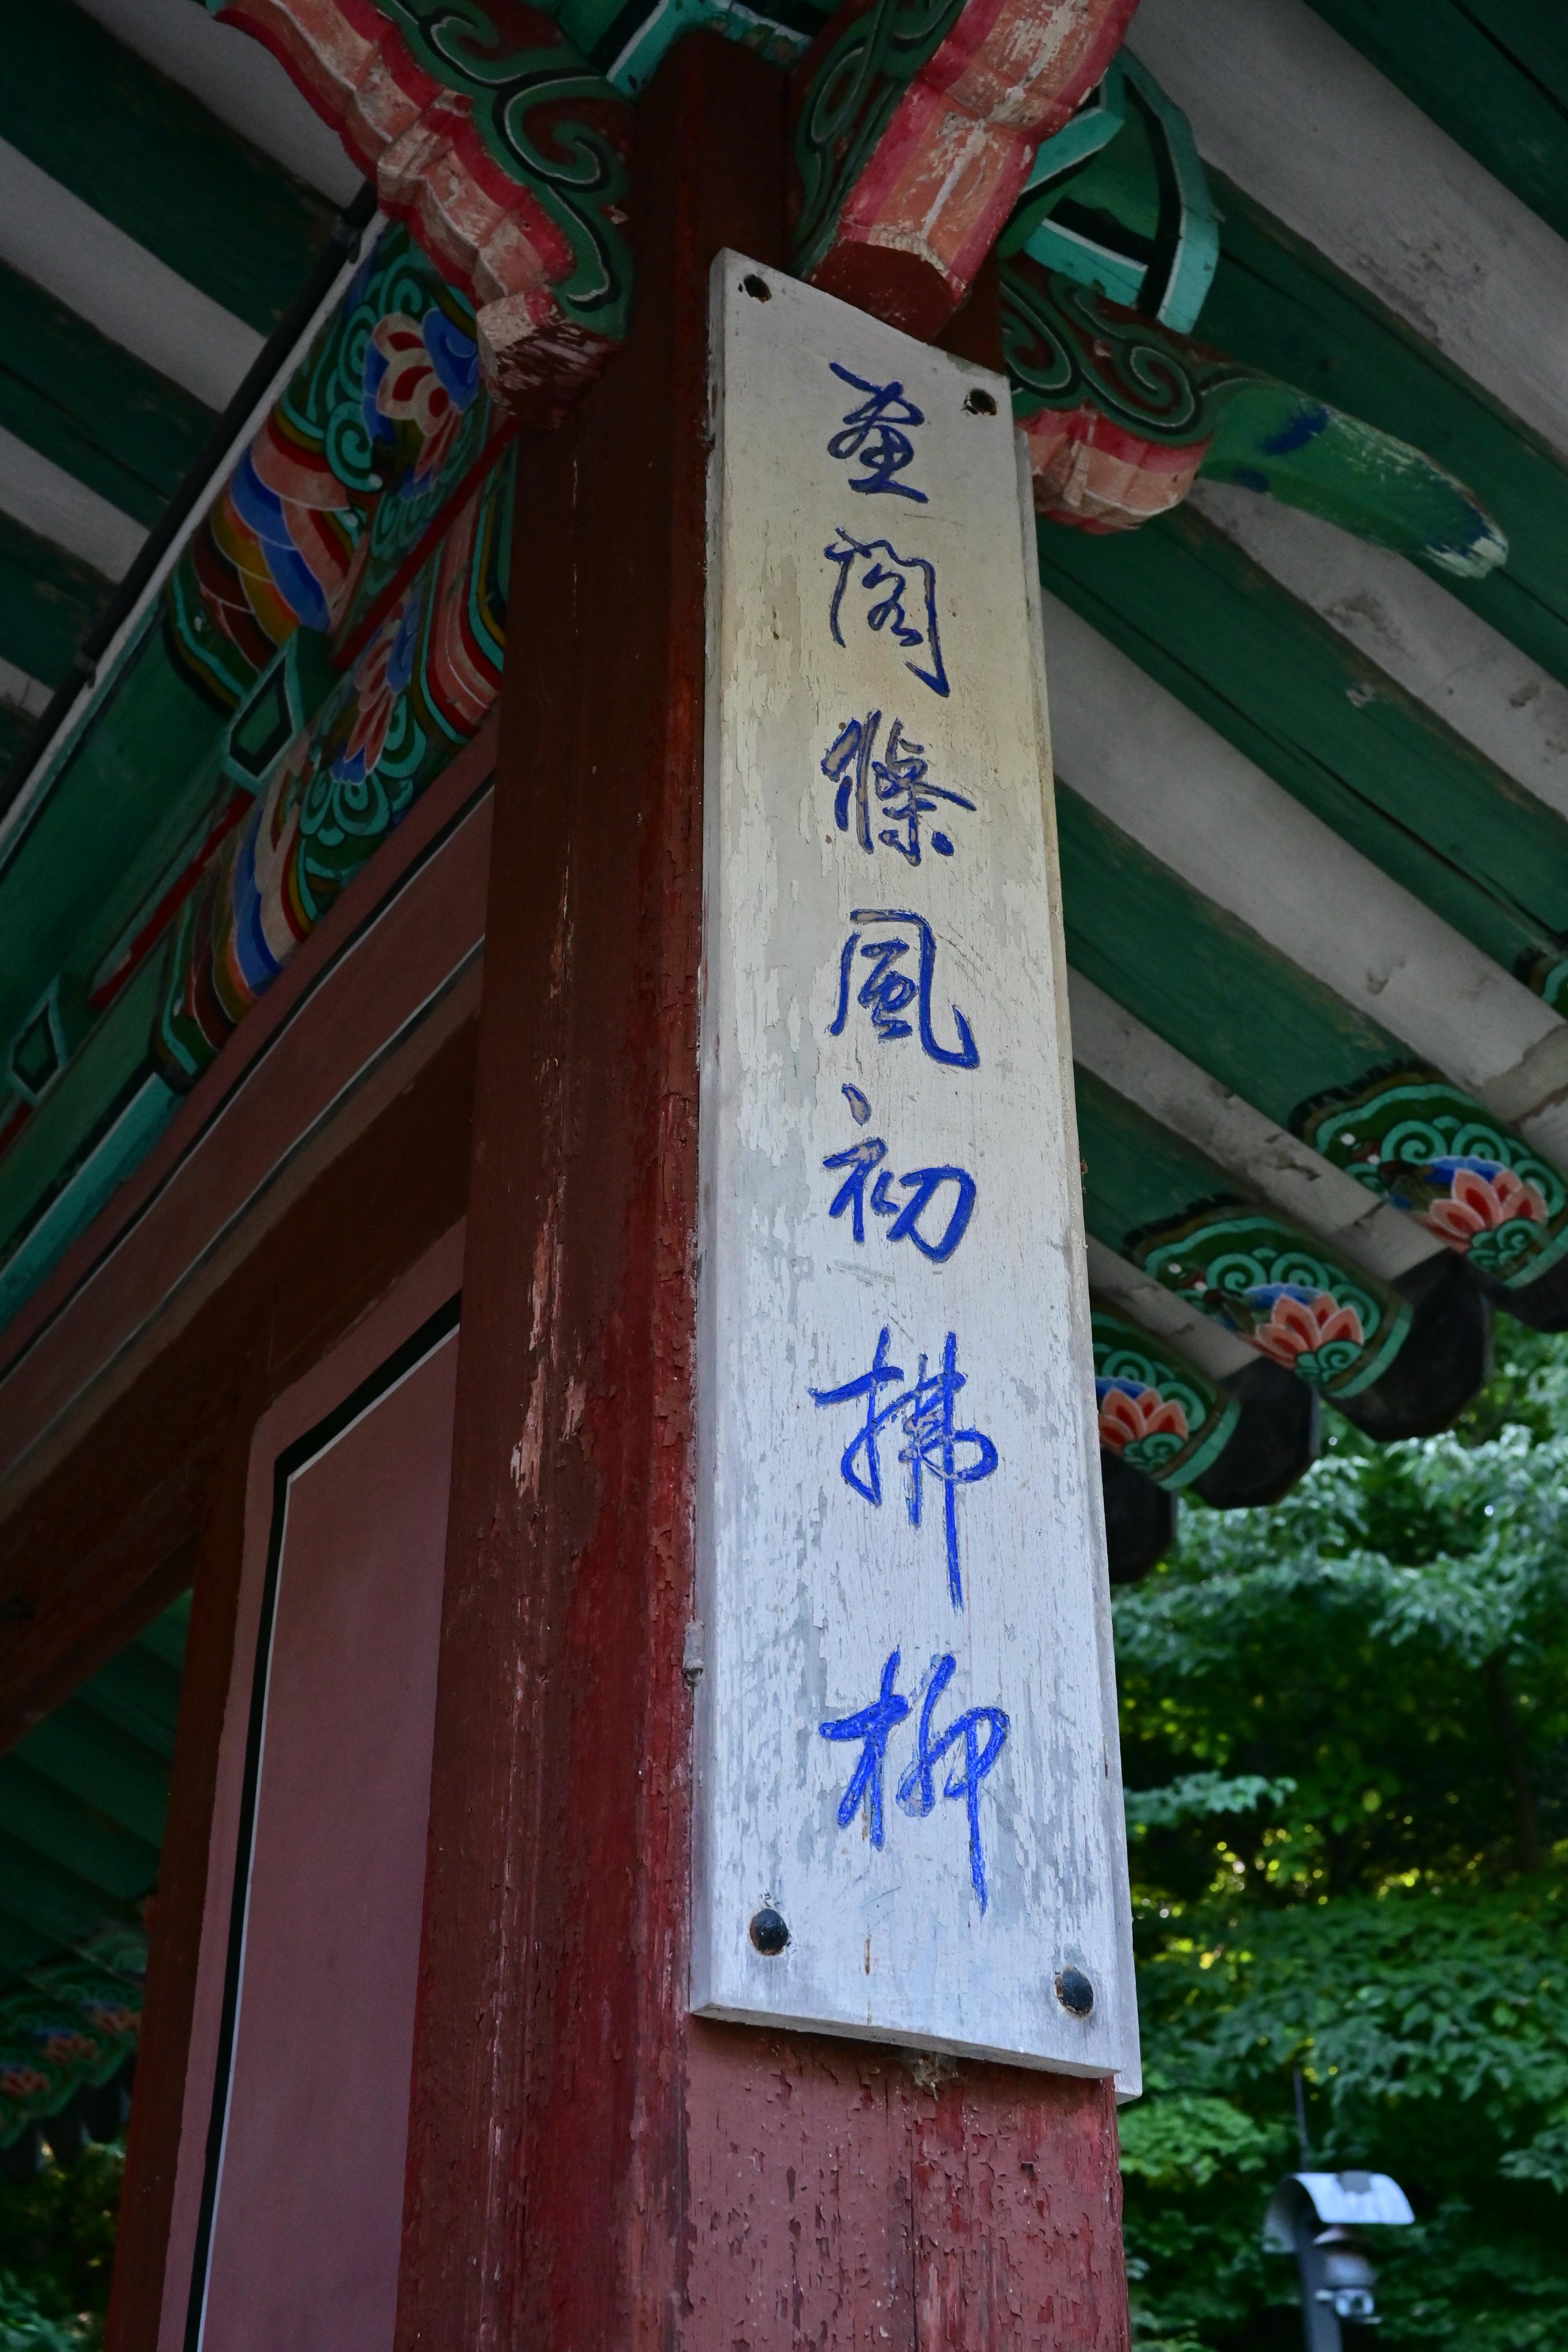 畫閣條風初拂柳